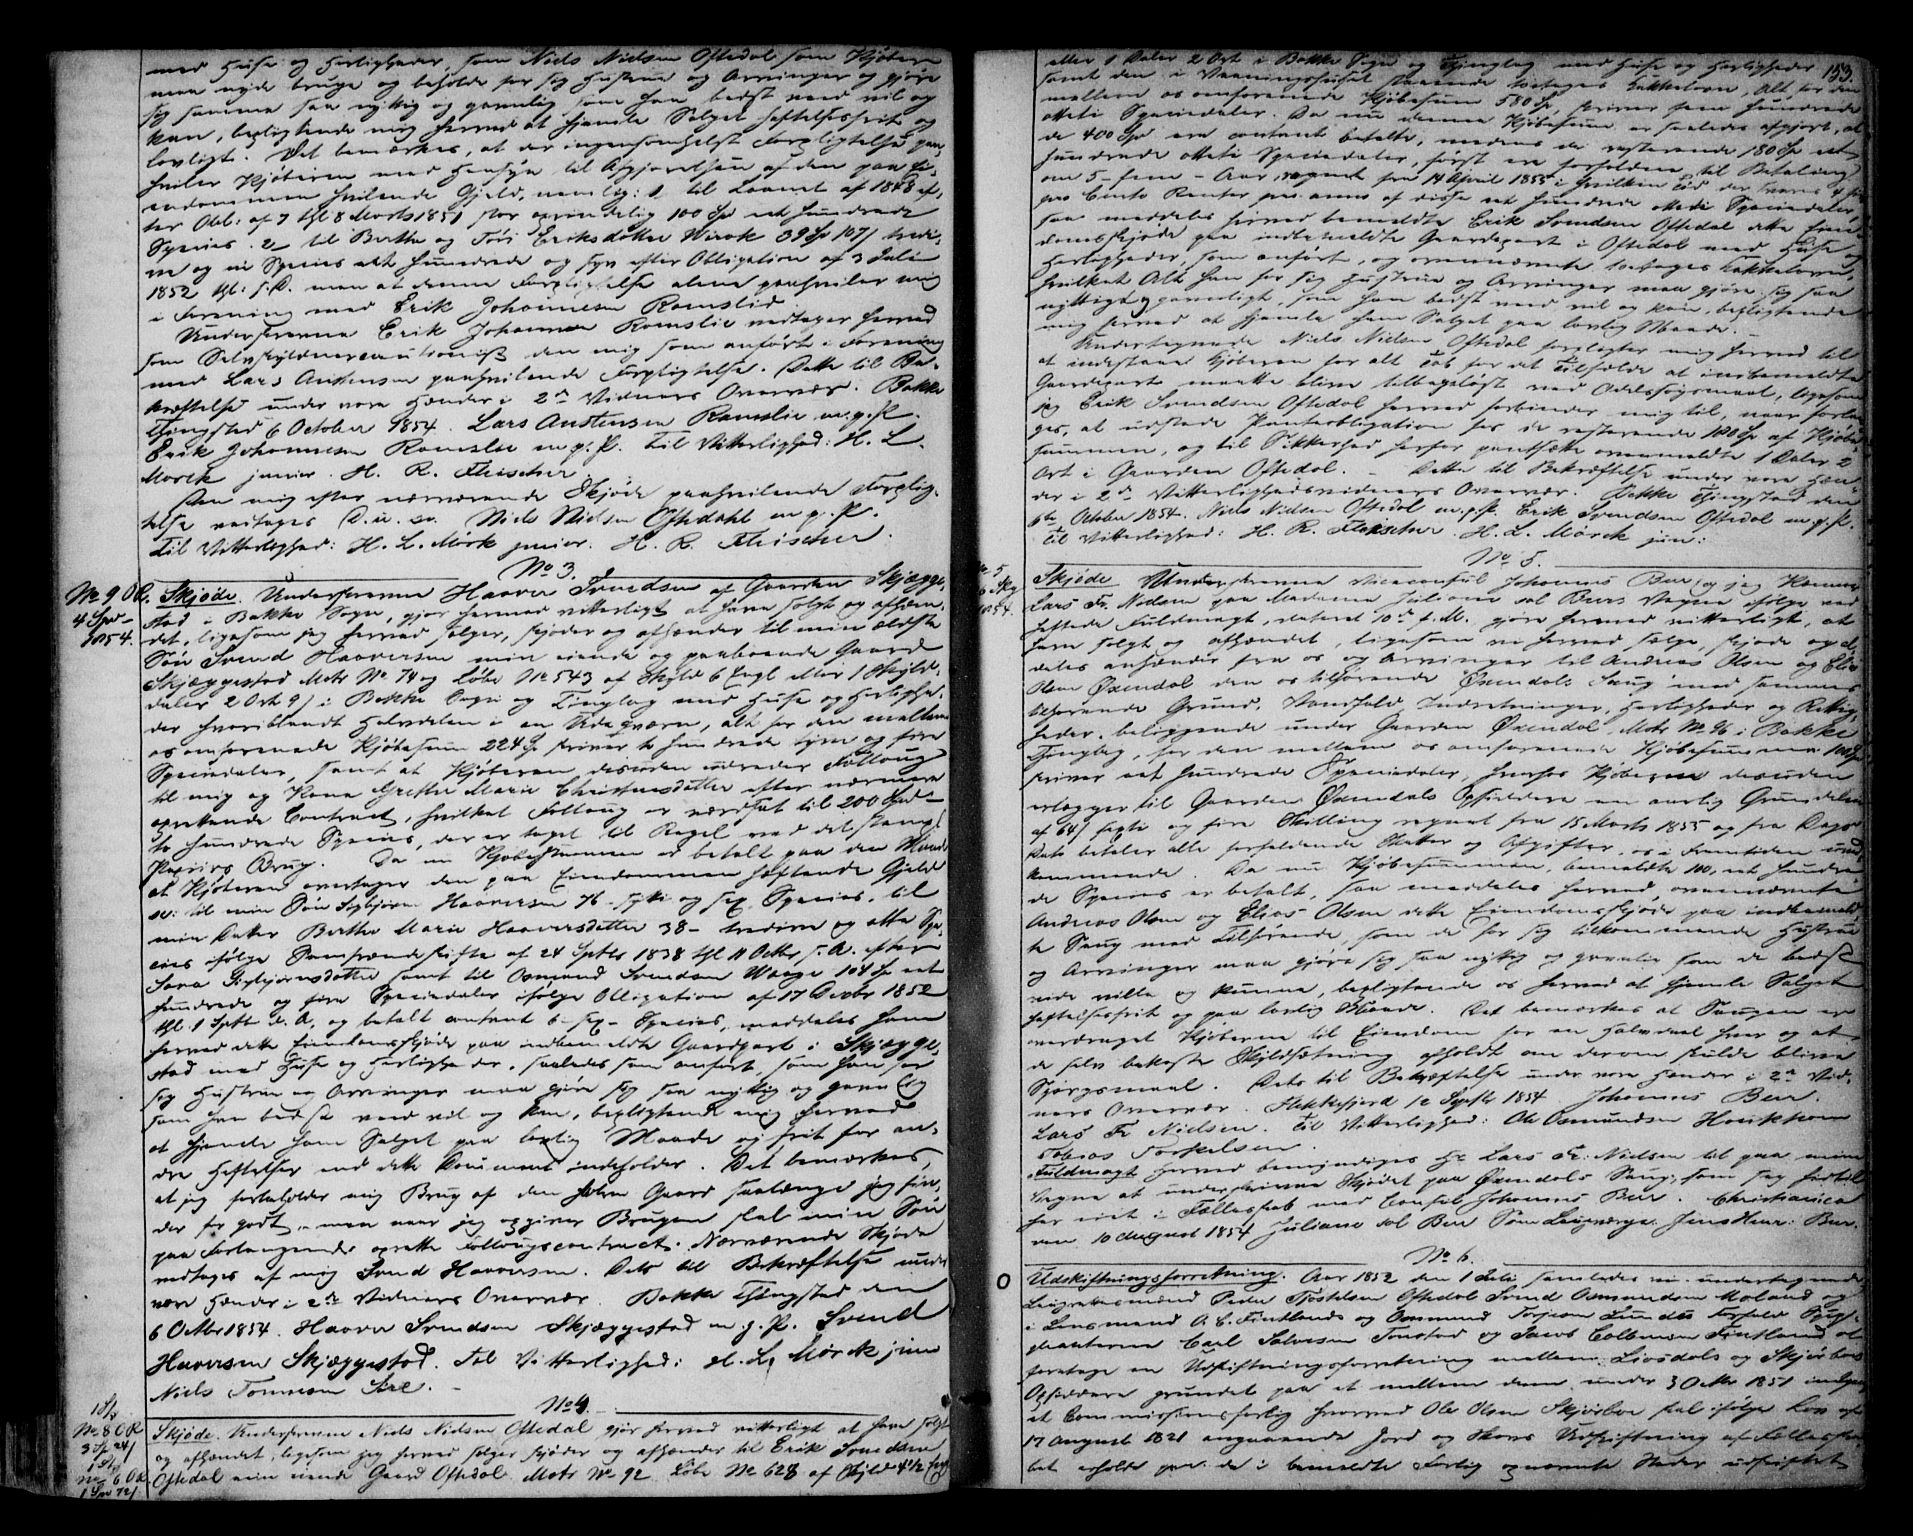 med Huse og Herligheder, som Niels Nielsen Oftedal som Kjøber
maa nyde bruge og beholde for sig Hustrue og Arvinger og gjøre
sig samme saa nyttig og gavnlig som han bedst veed vil og
kan, begligtende mig herved at hjemle Salget heftelsesfrit og
lovligt. Det bemærkes, at der ingensomhelst Forpligtelse paa-
hviler Kjøberen med Hensyn til Afgjørelsen af den paa Ei-
endommen hvilende Gjeld, nemlig: 1, til Laanet af 1848 ef-
ter Obl: af 7 thl 8 Marts 1851 stor oprindelig 100 Spd et hundrede
Species. 2 til Berthe og Tøri Eriksdøttre Wirak 39 Sp 107 s tredi-
ve og ni Species et hundrede og syv efter Obligation af 3 Juli
1852 thl: s. D. men at denne Forpligtelse alene paahviler mig
i Forening med Erik Johannesen Romslid.
Underskrevne Erik Johannesen Romslie vedtager herved
som Selvskyldnercautionist den mig som anført i Forening
med Lars Austensen paahvilende Forpligtelse. Dette til Be-
kræftelse under vore Hænder i 2de Vidners Overvær. Bakke
Thingsted 6 October 1854. Lars Austensen Romslie m. g. P.
Erik Johannesen Romslie m. g. P. Til Vitterlighed: H. L.
Mørck junior. H. R. Fleischer.
Den mig efter nærværende Skjøde paahvilende Forplig-
telse vedtages D. u. s. Niels Nielsen Oftedahl m. g. P.
Til Vitterlighed: H. L. Mørk junior. H. R. Fleischer.
No 3.
No 9 O R.
4 Spd
1854.
Skjøde. Underskrevne Haaver Svendsen af Gaarden Skjægge-
stad i Bakke Sogn, gjør hermed vitterligt at have solgt og afhæn-
det, ligesom jeg herved sælger, skjøder og afhænder til min ældste
Søn Svend Haaversen min eiende og paaboende Gaard
Skjæggestad Matr No 74 og Løbe No 543 af Skyld 6 Engl Mrk 1 Skyld-
daler 2 Ort 9 s i Bakke Sogn og Tinglag med Huse og Herlighe-
der hvoriblandt Halvdelen i en Udeqværn, alt for den mellem
os omforenede Kjøbesum 224 Sp skriver to hundrede tyve og fire
Speciedaler, samt at Kjøberen desuden udreder Follaug
til mig og Kone Grethe Marie Christensdatter efter nærmere
oprettende Contract, hvilket Follaug er værdsat til 200 Spd
to hundrede Species, der er taget til Regel ved det stempl.
Papiirs Brug. Da nu Kjøbesummen er betalt paa den Maade
at Kjøberen overtager den paa Eiendommen heftende Gjeld
til min Søn Sigbjørn Haaversen 76 - sytti og sex Species, til
min Datter Berthe Marie Haaversdatter 38 - tredive og otte Spe-
cies ifølge Samfrændeskifte af 24 Septbr 1838 thl 11 Octbr s. A. efter
Sara Sigbjørnsdatter samt til Osmund Svendsen Waage 104 Sp et
hundrede og fire Speciedaler ifølge Obligation af 17 Decbr 1852
thl. 1 Septbr d. A., og betalt contant 6 - sex - Species, meddeles ham
herved dette Eiendomsskjøde paa indbemeldte Gaardpart i Skjægge-
stad med Huse og Herligheder, saaledes som anført, som han for
sig Hustrue og Arvinger maa gjøre sig saa nyttig og gavnlig
som han bedst veed vil og kan, begligtende mig herved
at hjemle ham Salget paa lovlig Maade og frit for an-
dre Heftelser end dette Document indeholder. Det bemærkes,
at jeg forbeholder mig Brug af den halve Gaard saalænge jeg fin-
der for godt, men naar jeg opgiver Brugen skal min Søn
paa Forlangende oprette Follaugscontract. Nærværende Skjøde
vedtages af mig Svend Haaversen. Dets til Bekræftelse under
vore Hænder i 2de Vidners Overvær. Bakke Thingsted den
6 Octbr 1854. Haaver Svendsen Skjæggestad m. g. P. Svend
Haaversen Skjæggestad. Til Vitterlighed: H. L. Mørck jun
Niels Tonnesen Sire.
No 4.
No 8 O R
3 Sp 24 s
No 6 O R
1 Spd 72 s
Skjøde. Underskrevne Niels Nielsen Oftedal gjør herved vitterligt at have solgt
og afhændet, ligesom jeg herved sælger skjøder og afhænder til Erik Svendsen
Oftedal min eiende Gaard Oftedal Matr No 92 Løbe No 628 af Skyld 4 1/2 Engl
153.
eller 1 Daler 2 Ort i Bakke Sogn og Thinglag med Huse og Herligheder
samt den i Vaaningshuset staaende toetages Kakkelovn, Alt for den
mellem os omforenede Kjøbesum 580 Sp, skriver fem hundrede
otteti Speciedaler. Da nu denne Kjøbesum er saaledes afgjort, at
de 400 Sp ere contant betalte, medens de resterende 180 Sp et
hundrede otteti Speciedaler, først ere forfaldne til Betaling
om 5 - fem - Aar, regnet fra 14 April 1855 i hvilken Tid der svares 4 fire
pro Cento Renter pro anno af disse et hundrede otteti Speciedaler,
saa meddeles herved bemeldte Erik Svendsen Oftedal dette Eien-
domsskjøde paa indbemeldte Gaardepart i Oftedal med Huse og
Herligheder, som anført, og ovennævnte toetages Kakkelovn,
hvilket Alt han for sig Hustrue og Arvinger maa gjøre sig saa
nyttigt og gavnligt, som han bedst veed vil og kan, begligtende
mig herved at hjemle ham Salget paa lovlig Maade.
Undertegnede Niels Nielsen Oftedal forpligter mig herved til
at indestaae Kjøberen for alt Tab for det Tilfælde at indbemeldte
Gaardepart maatte blive tilbageløst ved Odelssøgsmaal, ligesom
jeg Erik Svendsen Oftedal herved forbinder mig til, naar forlan-
ges, at udstede Panteobligation for de resterende 180 Sp af Kjøbe-
summen, og til Sikkerhed herfor pantsætte ovenmeldte 1 Daler 2
Ort i Gaarden Oftedal. - Dette til Bekræftelse under vore Hæn-
der i 2de Vitterlighedsvidners Overvær. Bakke Thingsted den
6te October 1854. Niels Nielsen Oftedal m. g. P. Erik Svendsen Oftedal m. g. P.
Til Vitterlighed: H. R. Fleischer. H. L. Mørck jun:
No 5.
No 5
1854.
Skjøde. Underskrevne Viceconsul Johannes Beer, og jeg
Lars Fr. Nielsen paa Madame Juliane sal Beers Vegne ifølge ved
heftede Fuldmagt, dateret 10de f. M., gjøre herved vitterligt, at
have solgt og afhændet, ligesom vi herved sælge, skjøde og al-
deles afhænder fra os og Arvinger til Andreas Olsen og Elias
Olsen Øxendal den os tilhørende Øxendals Saug med sammes
tilhørende Grund, Vandfald, Indretninger, Herligheder og Rettig-
heder, beliggende under Gaarden Øxendal Matr No 96 i Bakke
Tinglag, for den mellem os omforenede Kjøbesum 100 Sp
skriver et hundrede Speciedaler, hvorhos Kjøberne desuden
erlægger til Gaarden Øxendals Opsiddere en aarlig Grundeleie
af 64 s segti og fire Skilling regnet fra 15 Marts 1855 og fra Dags
Dato betaler alle forfaldende Skatter og Afgifter, os i Fremtiden uved-
kommende. Da nu Kjøbesummen, bemeldte 100, et hundre-
de Species er betalt, saa meddeles herved ovennævnte
Andreas Olsen og Elias Olsen dette Eiendomsskjøde paa indbemeld-
te Saug med Tilhørende, som de for sig tilkommende Hustrue
og Arvinger maa gjøre sig saa nyttig og gavnlig som de bedst
vide ville og kunne, begligtende os herved at hjemle Salget
heftelsesfrit og paa lovlig Maade. Det bemærkes at Saugen er
overdraget Kjøberne til Eiendom for en Halvdeel hver og at
de selv bekoste Skyldsætning afholdt om derom skulde blive
Spørgsmaal. Dets til Bekræftelse under vore Hænder i 2de Vid-
ners Overvær. Flekkefjord 12 Septbr 1854. Johannes Beer.
Lars Fr Nielsen. Til Vitterlighed: Ole Osmundsen Henriksen
Tobias Torkelsen.
Fuldmagt. Herved bemyndiges Hr Lars Fr. Nielsen til paa mine
Vegne at underskrive Skjødet paa Øxendals Saug, som jeg hidtil
har eiet i Fællesskab med Consul Johannes Beer. Christiania
den 10 August 1854 Juliane sal Beer Som Laugværge: Jens Henr: Beer.
No 6.
Udskiftningsforretning. Aar 1852 den 1 Juli samledes vi undertegnede
Laugrettesmænd Peder Tostelsen Oftedal Svend Osmundsen Moland og
i Lensmand A. C. Fintlands og Osmund Torjesen Lundes Forfald Supp-
leanterne Carl Salvesen Tonstad og Jacob Colbensen Fintland at
foretage en Udskiftningsforretning mellem Livsdals og Skjørboes
Opsiddere grundet paa et mellem dem under 3 Octbr 1851 indgaaet
Commissionsforlig hvorved Ole Olsen Skjørboe skal ifølge Lov af
17 August 1821 angaaende Jord og Skovs Udskiftning af Fællesska-
bet erholde paa de i bemeldte Forlig nævnte Steder udskiftet